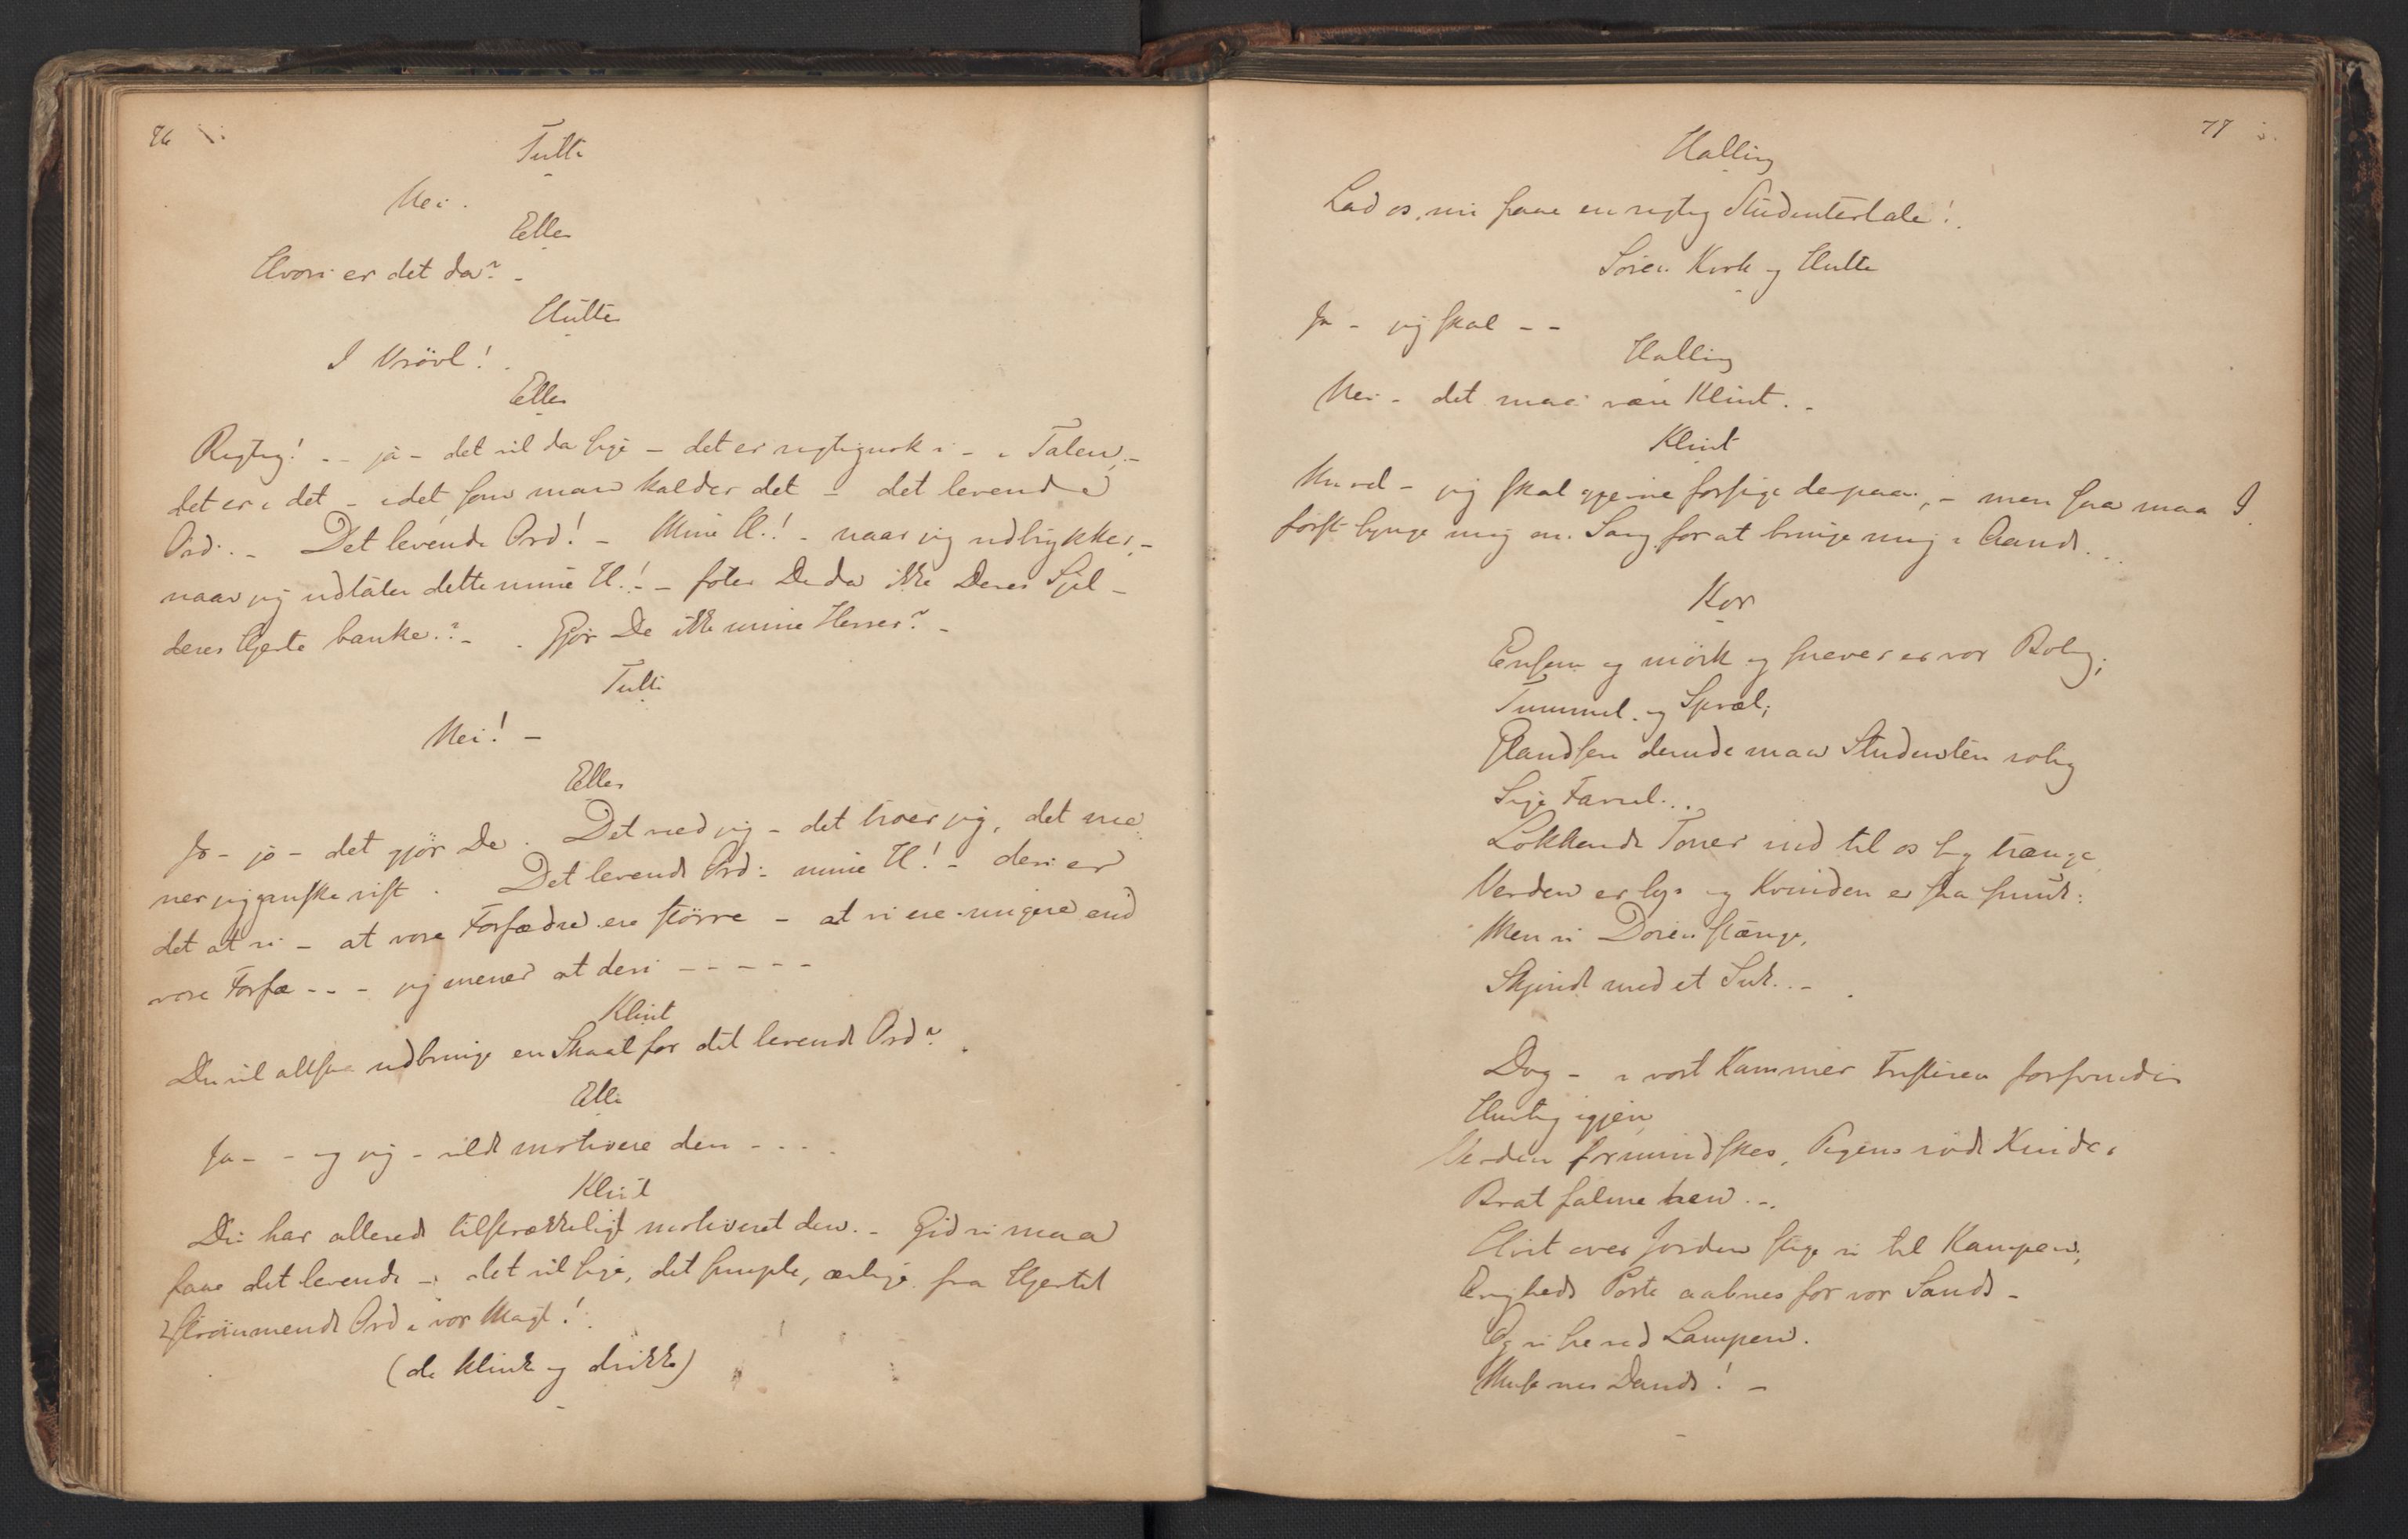 76
Tutti
Nei.
Eller
Hvori er det da? -
Hütte
I Vrövl!
Eller
Rigtig! -- ja - det vil da sige - det er rigtignok i - i Talen, -
det er i det - i det som man kalder det - det levende
Ord. - Det levende Ord! - Mine H.! - naar jeg udtrykker, -
naar jeg udtaler dette mine H.! - föler De da ikke Deres Sjel -
deres Hjerte banke? - Gjör De ikke mine Herrer? -
Tutti
Nei! -
Eller
Jo - jo - det gjör De. Det ved jeg - det troer jeg, det me
ner jeg ganske vist. Det levende Ord: mine H! - deri er
det at vi - at vore Forfædre ere större - at vi ere ringere end
vore Forfæ - - - jeg mener at deri - - - - -
Klint
Du vil altsaa udbringe en Skaal for det levende Ord?
Eller
Ja - - og jeg - vilde motivere den - - - .
Klint
Du har allerede tilstrækkeligt motiveret den. - Gid vi maa
faae det levende - det vil sige, det simple, ærlige fra Hjertet
strömmende Ord i vor Magt!
(de klinke og drikke)
77
Halling
Lad os nu faae en rigtig Studentertale!
Sören Kirk og Hutte
Ja - jeg skal - -
Halling
Nei - det maa være Klint. -
Klint
Nu vel - jeg skal gjerne forsöge derpaa, - men saa maa I
först synge mig en Sang for at bringe mig i Aand.
Kor
Ensom og mörk og snever er vor Bolig;
Tummel og Spræl;
Glandsen derude maa Studenten rolig
Sige Farvel. .
Lokkende Toner ind til os sig trænge
Verden er lys og Kvinden er saa smuk:
Men vi Dören stænge,
Skjöndt med et Suk. . -
Dog - i vort Kammer Fristeren forsvinder
Hurtig igjen
Verden formindskes, Pigens röde Kinder
Brat falme hen. -.
Höit over Jorden stige vi til Kampen;
Evigheds Porte aabnes for vor Sands -
Og vi se ved Lampen.
Musernes Dands! -